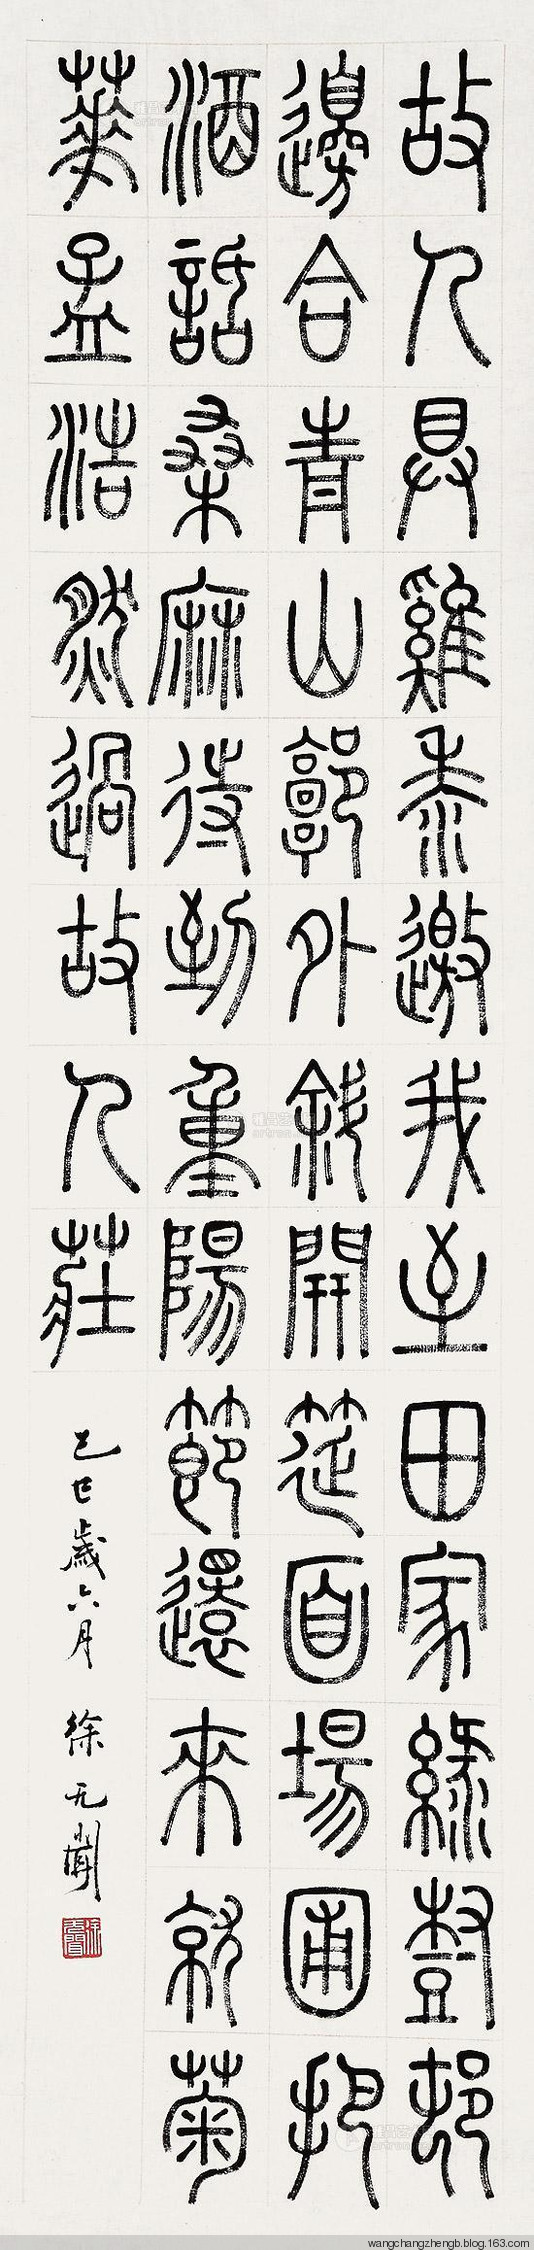 故人具雞黍邀我至田家綠樹邨
邊合青山郭外斜開筵面場圃把
酒話桑麻待到重陽節還來就菊
華孟浩然過故人莊
己巳歲六月 徐无聞
wangchangzhengb.blog.163.com